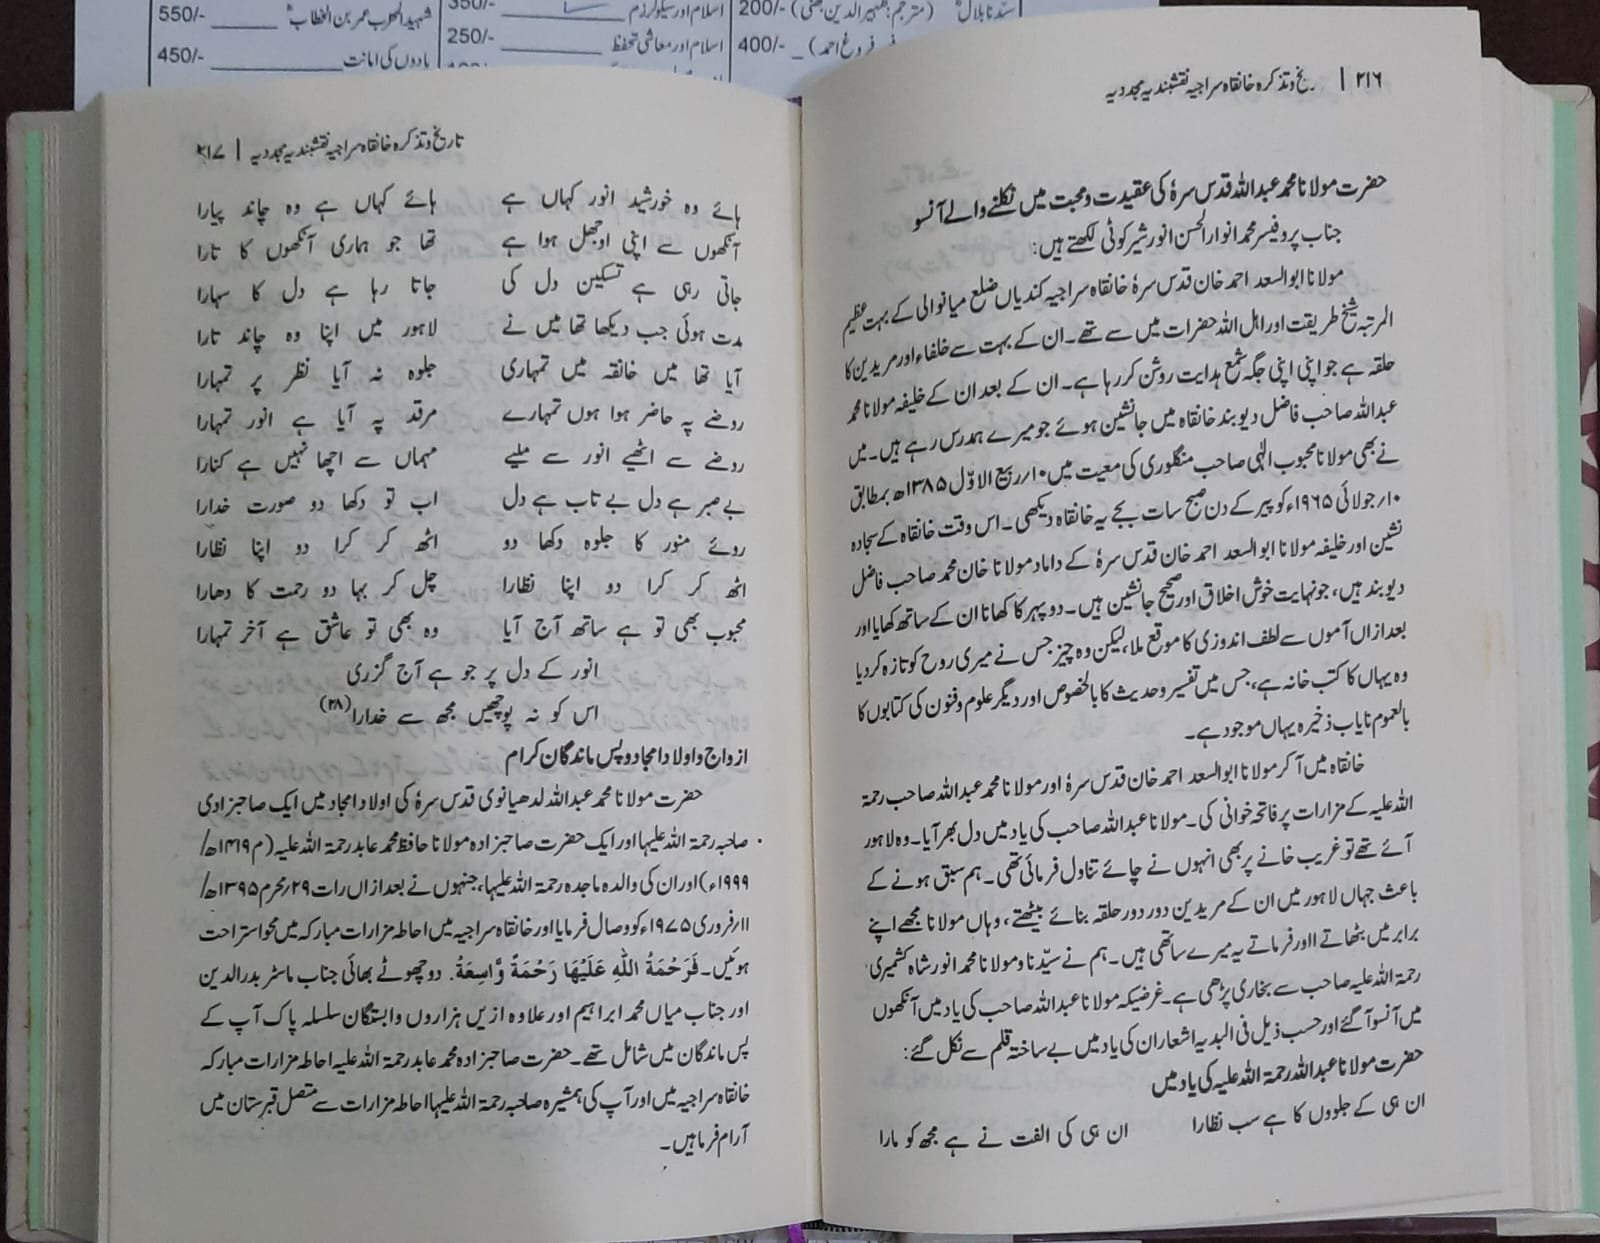 550/- شہید المحراب عمر بن الخطابؓ
450/- یادوں کی امانت
350/- اسلام اور سیکولرزم
250/- اسلام اور معاشی تحفظ
200/- سیّدنا بلالؓ (مترجم: ظہیر الدین بھٹی)
400/- فروغ احمد)
۲۱۶ | ریخ و تذکرہ خانقاہ سراجیہ نقشبندیہ مجددیہ
حضرت مولانا محمد عبداللہ قدس سرہٗ کی عقیدت و محبت میں نکلنے والے آنسو
جناب پروفیسر محمد انوار الحسن انور شیرکوٹی لکھتے ہیں:
مولانا ابوالسعد احمد خان قدس سرہٗ خانقاہ سراجیہ کندیاں ضلع میانوالی کے بہت عظیم
المرتبہ شیخ طریقت اور اہل اللہ حضرات میں سے تھے۔ ان کے بہت سے خلفاء اور مریدین کا
حلقہ ہے جو اپنی اپنی جگہ شمع ہدایت روشن کر رہا ہے۔ ان کے بعد ان کے خلیفہ مولانا محمد
عبداللہ صاحب فاضل دیوبند خانقاہ میں جانشین ہوئے جو میرے ہمدرس رہے ہیں۔ میں
نے بھی مولانا محبوب الٰہی صاحب منگلوری کی معیت میں ۱۰/ربیع الاوّل ۱۳۸۵ھ بمطابق
۱۰/جولائی ۱۹۶۵ء کو پیر کے دن صبح سات بجے یہ خانقاہ دیکھی۔ اس وقت خانقاہ کے سجادہ
نشین اور خلیفہ مولانا ابوالسعد احمد خان قدس سرہٗ کے داماد مولانا خان محمد صاحب فاضل
دیوبند ہیں، جو نہایت خوش اخلاق اور صحیح جانشین ہیں۔ دوپہر کا کھانا ان کے ساتھ کھایا اور
بعد ازاں آموں سے لطف اندوزی کا موقع ملا، لیکن وہ چیز جس نے میری روح کو تازہ کر دیا
وہ یہاں کا کتب خانہ ہے، جس میں تفسیر و حدیث کا بالخصوص اور دیگر علوم و فنون کی کتابوں کا
بالعموم نایاب ذخیرہ یہاں موجود ہے۔
خانقاہ میں آ کر مولانا ابوالسعد احمد خان قدس سرہٗ اور مولانا محمد عبداللہ صاحب رحمۃ
اللہ علیہ کے مزارات پر فاتحہ خوانی کی۔ مولانا عبداللہ صاحب کی یاد میں دل بھر آیا۔ وہ لاہور
آئے تھے تو غریب خانے پر بھی انہوں نے چائے تناول فرمائی تھی۔ ہم سبق ہونے کے
باعث جہاں لاہور میں ان کے مریدین دور دور حلقہ بنائے بیٹھتے، وہاں مولانا مجھے اپنے
برابر میں بٹھاتے ااور فرماتے یہ میرے ساتھی ہیں۔ ہم نے سیّدنا و مولانا محمد انور شاہ کشمیری
رحمۃ اللہ علیہ صاحب سے بخاری پڑھی ہے۔ غرضیکہ مولانا عبداللہ صاحب کی یاد میں آنکھوں
میں آنسو آ گئے اور حسب ذیل فی البدیہ اشعار ان کی یاد میں بے ساختہ قلم سے نکل گئے:
حضرت مولانا عبداللہ رحمۃ اللہ علیہ کی یاد میں
ان ہی کے جلووں کا ہے سب نظارا ان ہی کی الفت نے ہے مجھ کو مارا
تاریخ و تذکرہ خانقاہ سراجیہ نقشبندیہ مجددیہ | ۲۱۷
ہائے وہ خورشید انور کہاں ہے ہائے کہاں ہے وہ چاند پیارا
آنکھوں سے اپنی اوجھل ہوا ہے تھا جو ہماری آنکھوں کا تارا
جاتی رہی ہے تسکین دل کی جاتا رہا ہے دل کا سہارا
مدت ہوئی جب دیکھا تھا میں نے لاہور میں اپنا وہ چاند تارا
آیا تھا میں خانقہ میں تمہاری جلوہ نہ آیا نظر پر تمہارا
روضے پہ حاضر ہوا ہوں تمہارے مرقد پہ آیا ہے انور تمہارا
روضے سے اٹھیے انور سے ملیے مہماں سے اچھا نہیں ہے کنارا
بے صبر ہے دل بے تاب ہے دل اب تو دکھا دو صورت خدارا
روئے منور کا جلوہ دکھا دو اٹھ کر کرا دو اپنا نظارا
اٹھ کر کرا دو اپنا نظارا چل کر بہا دو رحمت کا دھارا
محبوب بھی تو ہے ساتھ آج آیا وہ بھی تو عاشق ہے آخر تمہارا
انور کے دل پر جو ہے آج گزری
اس کو نہ پوچھیں مجھ سے خدارا(۲۸)
ازواج و اولاد امجاد و پس ماندگان کرام
حضرت مولانا محمد عبداللہ لدھیانوی قدس سرہٗ کی اولاد امجاد میں ایک صاحبزادی
صاحبہ رحمۃ اللہ علیہا اور ایک حضرت صاحبزادہ مولانا حافظ محمد عابد رحمۃ اللہ علیہ (م ۱۴۱۹ھ/
۱۹۹۹ء) اور ان کی والدہ ماجدہ رحمۃ اللہ علیہا، جنہوں نے بعد ازاں رات ۲۹/محرم ۱۳۹۵ھ/
۱۱/فروری ۱۹۷۵ء کو وصال فرمایا اور خانقاہ سراجیہ میں احاطہ مزارات مبارکہ میں محو استراحت
ہوئیں۔ فَرَحْمَةُ اللّٰهِ عَلَيْهَا رَحْمَةً وَّاسِعَةً. دو چھوٹے بھائی جناب ماسٹر بدرالدین
اور جناب میاں محمد ابراہیم اور علاوہ ازیں ہزاروں وابستگان سلسلہ پاک آپ کے
پس ماندگان میں شامل تھے۔ حضرت صاحبزادہ محمد عابد رحمۃ اللہ علیہ احاطہ مزارات مبارکہ
خانقاہ سراجیہ میں اور آپ کی ہمشیرہ صاحبہ رحمۃ اللہ علیہا احاطہ مزارات سے متصل قبرستان میں
آرام فرما ہیں۔